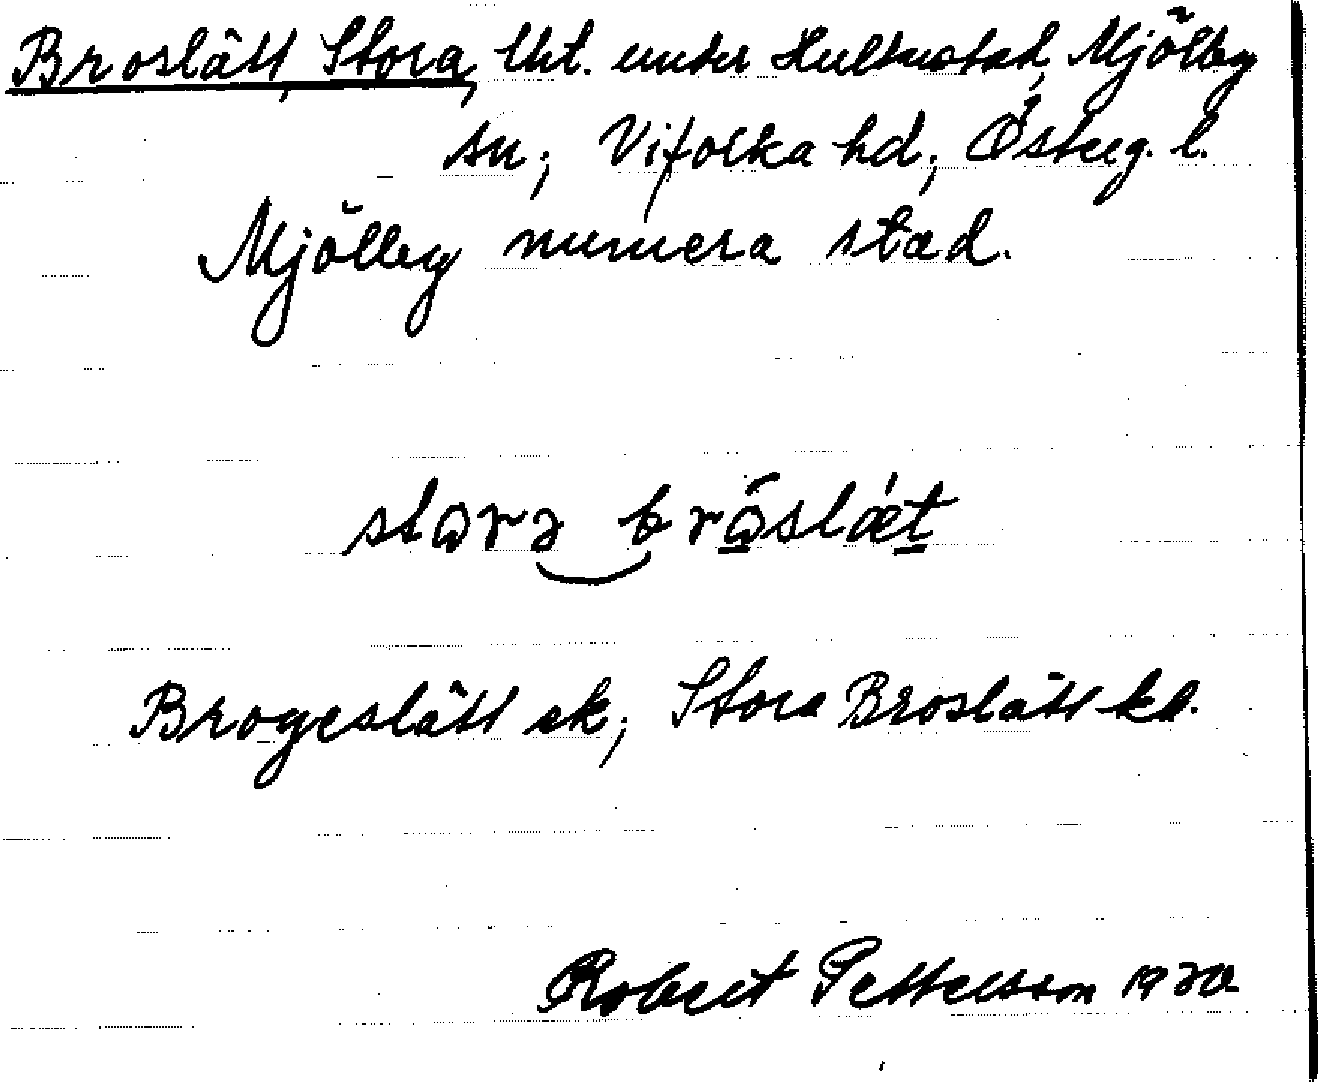 Broslätt, Stora, lht. under Hulterstad, Mjölby
sn; Vifolka hd; Österg. l.
Mjölby numera stad.
stọrə brọ́slæ̀t
Brogeslätt ek; Stora Broslätt kd.
Robert Pettersson 1920